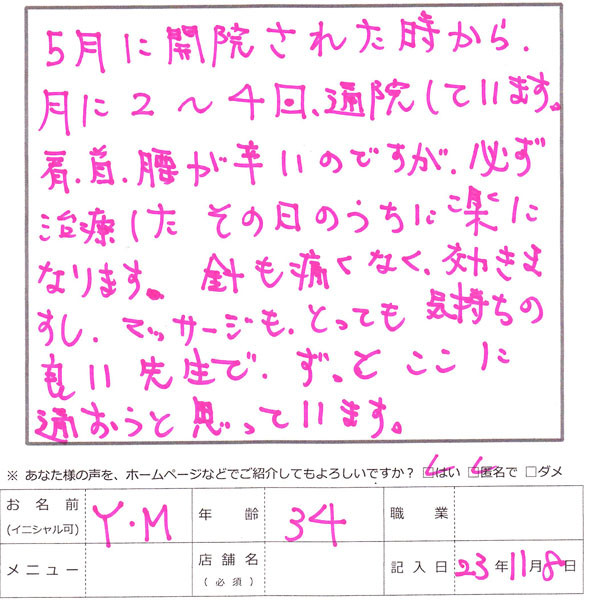 5月に開院された時から、
月に2〜4回、通院しています。
肩、首、腰が辛いのですが、必ず
治療した その日のうちに 楽に
なります。 針も痛くなく、効きま
すし、マッサージも、とっても 気持ちの
良い 先生で、ずっと ここに
通おうと 思っています。
※ あなた様の声を、ホームページなどでご紹介してもよろしいですか? □はい □匿名で □ダメ
お名前 (イニシャル可) Y・M 年齢 34 職業
メニュー 店舗名 (必須) 記入日 23年11月8日